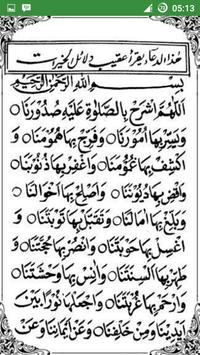 05:13
هذا الدعاء يقرأ عقيب دلائل الخيرات
بسم الله الرحمن الرحيم
اَللّٰهُمَّ اشْرَحْ بِالصَّلٰوةِ عَلَيْهِ صُدُوْرَنَا
وَيَسِّرْ بِهَا اُمُوْرَنَا وَفَرِّجْ بِهَا هُمُوْمَنَا وَ
اكْشِفْ بِهَا غُمُوْمَنَا وَاغْفِرْ بِهَا ذُنُوْبَنَا
وَاقْضِ بِهَا دُيُوْنَنَا وَاَصْلِحْ بِهَا اَحْوَالَنَا
وَبَلِّغْ بِهَا اٰمَالَنَا وَتَقَبَّلْ بِهَا تَوْبَتَنَا وَ
اغْسِلْ بِهَا حَوْبَتَنَا وَانْصُرْ بِهَا حُجَّتَنَا وَ
طَهِّرْ بِهَا اَلْسِنَتَنَا وَاٰنِسْ بِهَا وَحْشَتَنَا
وَارْحَمْ بِهَا غُرْبَتَنَا وَاجْعَلْهَا نُوْرًا بَيْنَ
اَيْدِيْنَا وَمِنْ خَلْفِنَا وَعَنْ اَيْمَانِنَا وَعَنْ